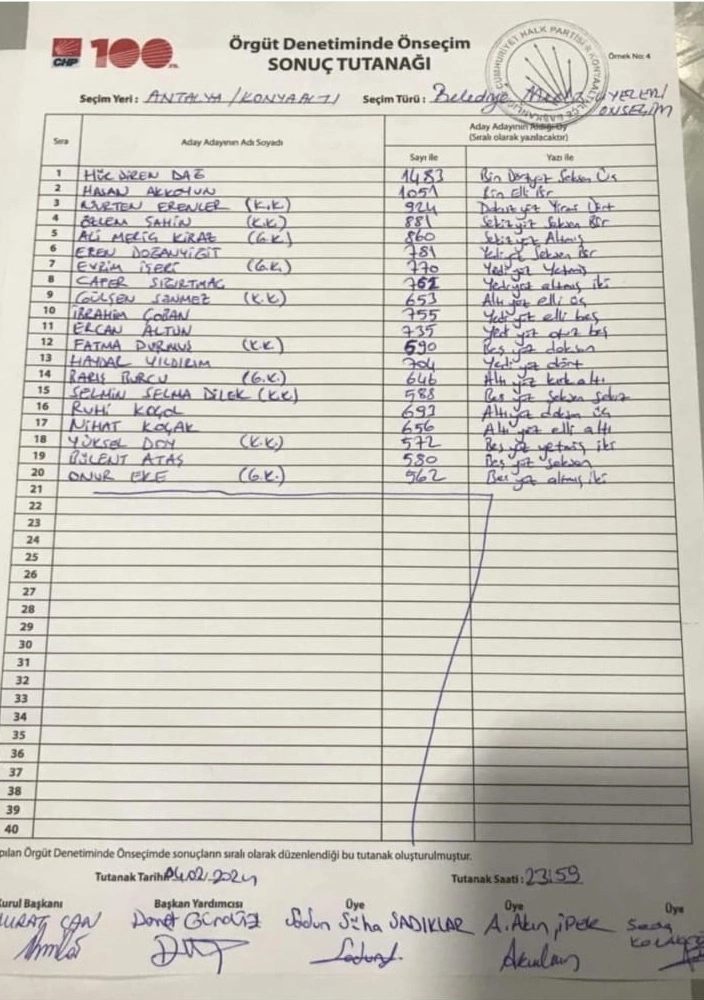 CHP 100 YIL
Örgüt Denetiminde Önseçim
SONUÇ TUTANAĞI
CUMHURİYET HALK PARTİSİ KONYAALTI İLÇE BAŞKANLIĞI
Örnek No: 4
Seçim Yeri : ANTALYA / KONYAALTI Seçim Türü : Belediye Meclis ÜYELERİ
ÖNSEÇİM
Sıra Aday Adayının Adı Soyadı Aday Adayının Aldığı Oy
(Sıralı olarak yazılacaktır)
Sayı ile Yazı ile
1 DİREN DAĞ 1483 Bin Dörtyüz Seksen Üç
2 HASAN AKKOYUN 1051 Bin Elli Bir
3 NURTEN ERENLER (K.K) 924 Dokuzyüz Yirmi Dört
4 ÖZLEM ŞAHİN (K.K) 881 Sekizyüz Seksen Bir
5 ALİ MERİÇ KİRAZ (G.K) 860 Sekizyüz Altmış
6 EREN DOĞANYİĞİT 781 Yediyüz Seksen Bir
7 EVRİM İŞERİ (G.K) 770 Yediyüz Yetmiş
8 CAFER SIĞIRTMAÇ 762 Yediyüz altmış iki
9 GÜLŞEN SÖNMEZ (K.K) 653 Altı yüz elli üç
10 İBRAHİM ÇOBAN 755 Yedi yüz elli beş
11 ERCAN ALTUN 735 Yedi yüz otuz beş
12 FATMA DURMUŞ (K.K) 590 Beş yüz doksan
13 HAYDAL YILDIRIM 704 Yedi yüz dört
14 BARIŞ BURCU (G.K) 646 Altı yüz kırk altı
15 SELMİN SELMA DİLEK (K.K) 588 Beş yüz seksen sekiz
16 RUHİ KOÇOL 693 Altı yüz doksan üç
17 NİHAT KOÇAK 656 Altı yüz elli altı
18 YÜKSEL DOY (K.K) 572 Beş yüz yetmiş iki
19 BÜLENT ATAŞ 580 Beş yüz seksen
20 ONUR EKE (G.K.) 562 Beş yüz altmış iki
21
22
23
24
25
26
27
28
29
30
31
32
33
34
35
36
37
38
39
40
pılan Örgüt Denetiminde Önseçimde sonuçların sıralı olarak düzenlendiği bu tutanak oluşturulmuştur.
Tutanak Tarihi: 04.02.2024 Tutanak Saati : 23:59
Kurul Başkanı Başkan Yardımcısı Üye Üye Üye
MURAT CAN Demet GÜNDÜZ Sadun Süha SADIKLAR A. Akın İPEK